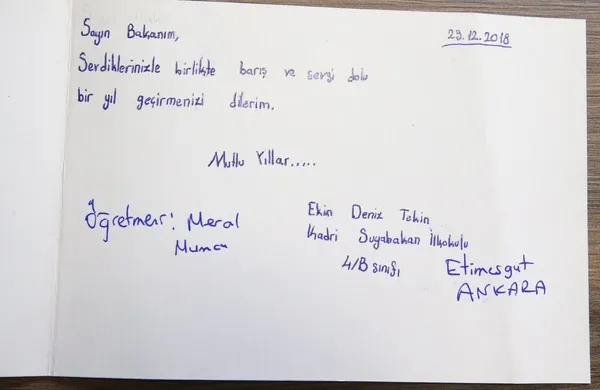 23.12.2018
Sayın Bakanım,
Serdiklerinizle birlikte barış ve sevgi dolu
bir yıl geçirmenizi dilerim.
Mutlu Yıllar.....
Öğretmen: Meral
Ekin Deniz Tekin
Kadri Suyabakan İlkokulu
4/B sınıfı
Etimesgut
ANKARA